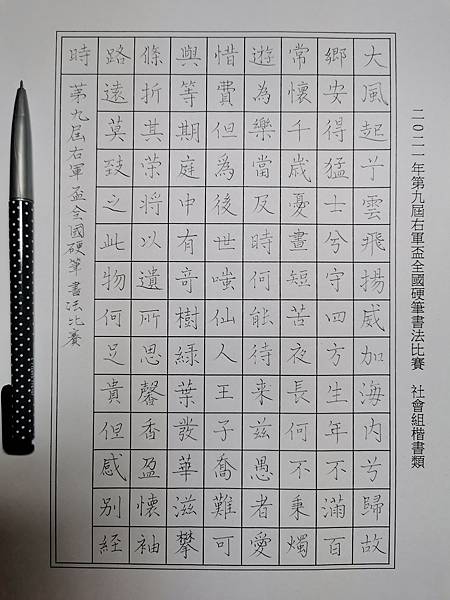 二〇二一年第九屆右軍盃全國硬筆書法比賽　社會組楷書類
大風起兮雲飛揚威加海內兮歸故
鄉安得猛士兮守四方生年不滿百
常懷千歲憂晝短苦夜長何不秉燭
遊為樂當及時何能待来茲愚者愛
惜費但為後世嗤仙人王子喬難可
與等期庭中有奇樹綠葉發華滋攀
條折其荣將以遺所思馨香盈懷袖
路遠莫致之此物何足貴但感別經
時
第九屆右軍盃全國硬筆書法比賽